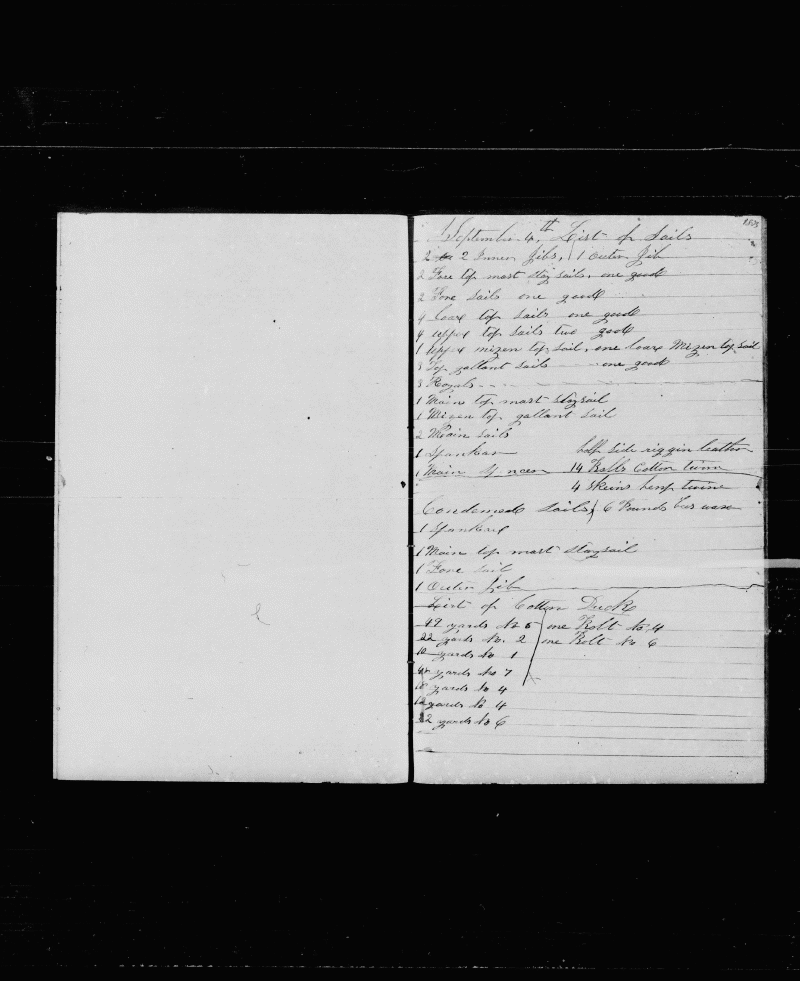 September 4th, List of Sails
2 2 Inner Jibs, 1 Outer Jib
2 Free top mast stay sails, one good
2 Fore sails one good
4 loax top sails one good
4 upper top sails two good
1 upper mizen top sail, one loax Mizen top sail
3 Top gallant sails one good
3 Royals
1 Main top mast staysail
1 Mizen top gallant sail
2 Main sails
1 Spankar half side riggin leather
1 Main 14 Balls Cotton twine
4 Skeins hemp twine
Condemed Sails 6 Pounds wax
1 Spankar
1 Main top mast staysail
1 Fore sail
1 Outer Jib
List of Cotton Duck
49 yards No 5 one Bolt No 4
22 yards No. 2 one Bolt No 6
10 yards No 1
yards No 7
10 yards No 4
12 yards No 4
32 yards No 6